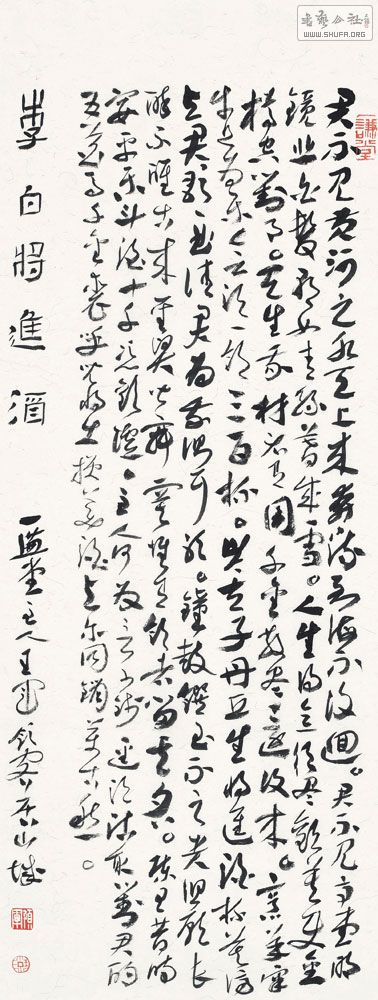 君不見黃河之水天上來奔流到海不復迴。君不見高堂明
鏡悲白髮朝如青絲暮成雪。人生得意須盡歡莫使金
樽空對月。天生我材必有用千金散盡還復來。烹羊宰
牛且為樂會須一飲三百杯。岑夫子丹丘生將進酒杯莫停
與君歌一曲請君為我傾耳聽。鐘鼓饌玉不足貴但願長
醉不醒古來聖賢皆寂寞惟有飲者留其名。陳王昔時
宴平樂斗酒十千恣歡謔。主人何為言少錢徑須沽取對君酌
五花馬千金裘呼兒將出換美酒與爾同銷萬古愁。
李白將進酒
堂主人王 山城
WWW.SHUFA.ORG